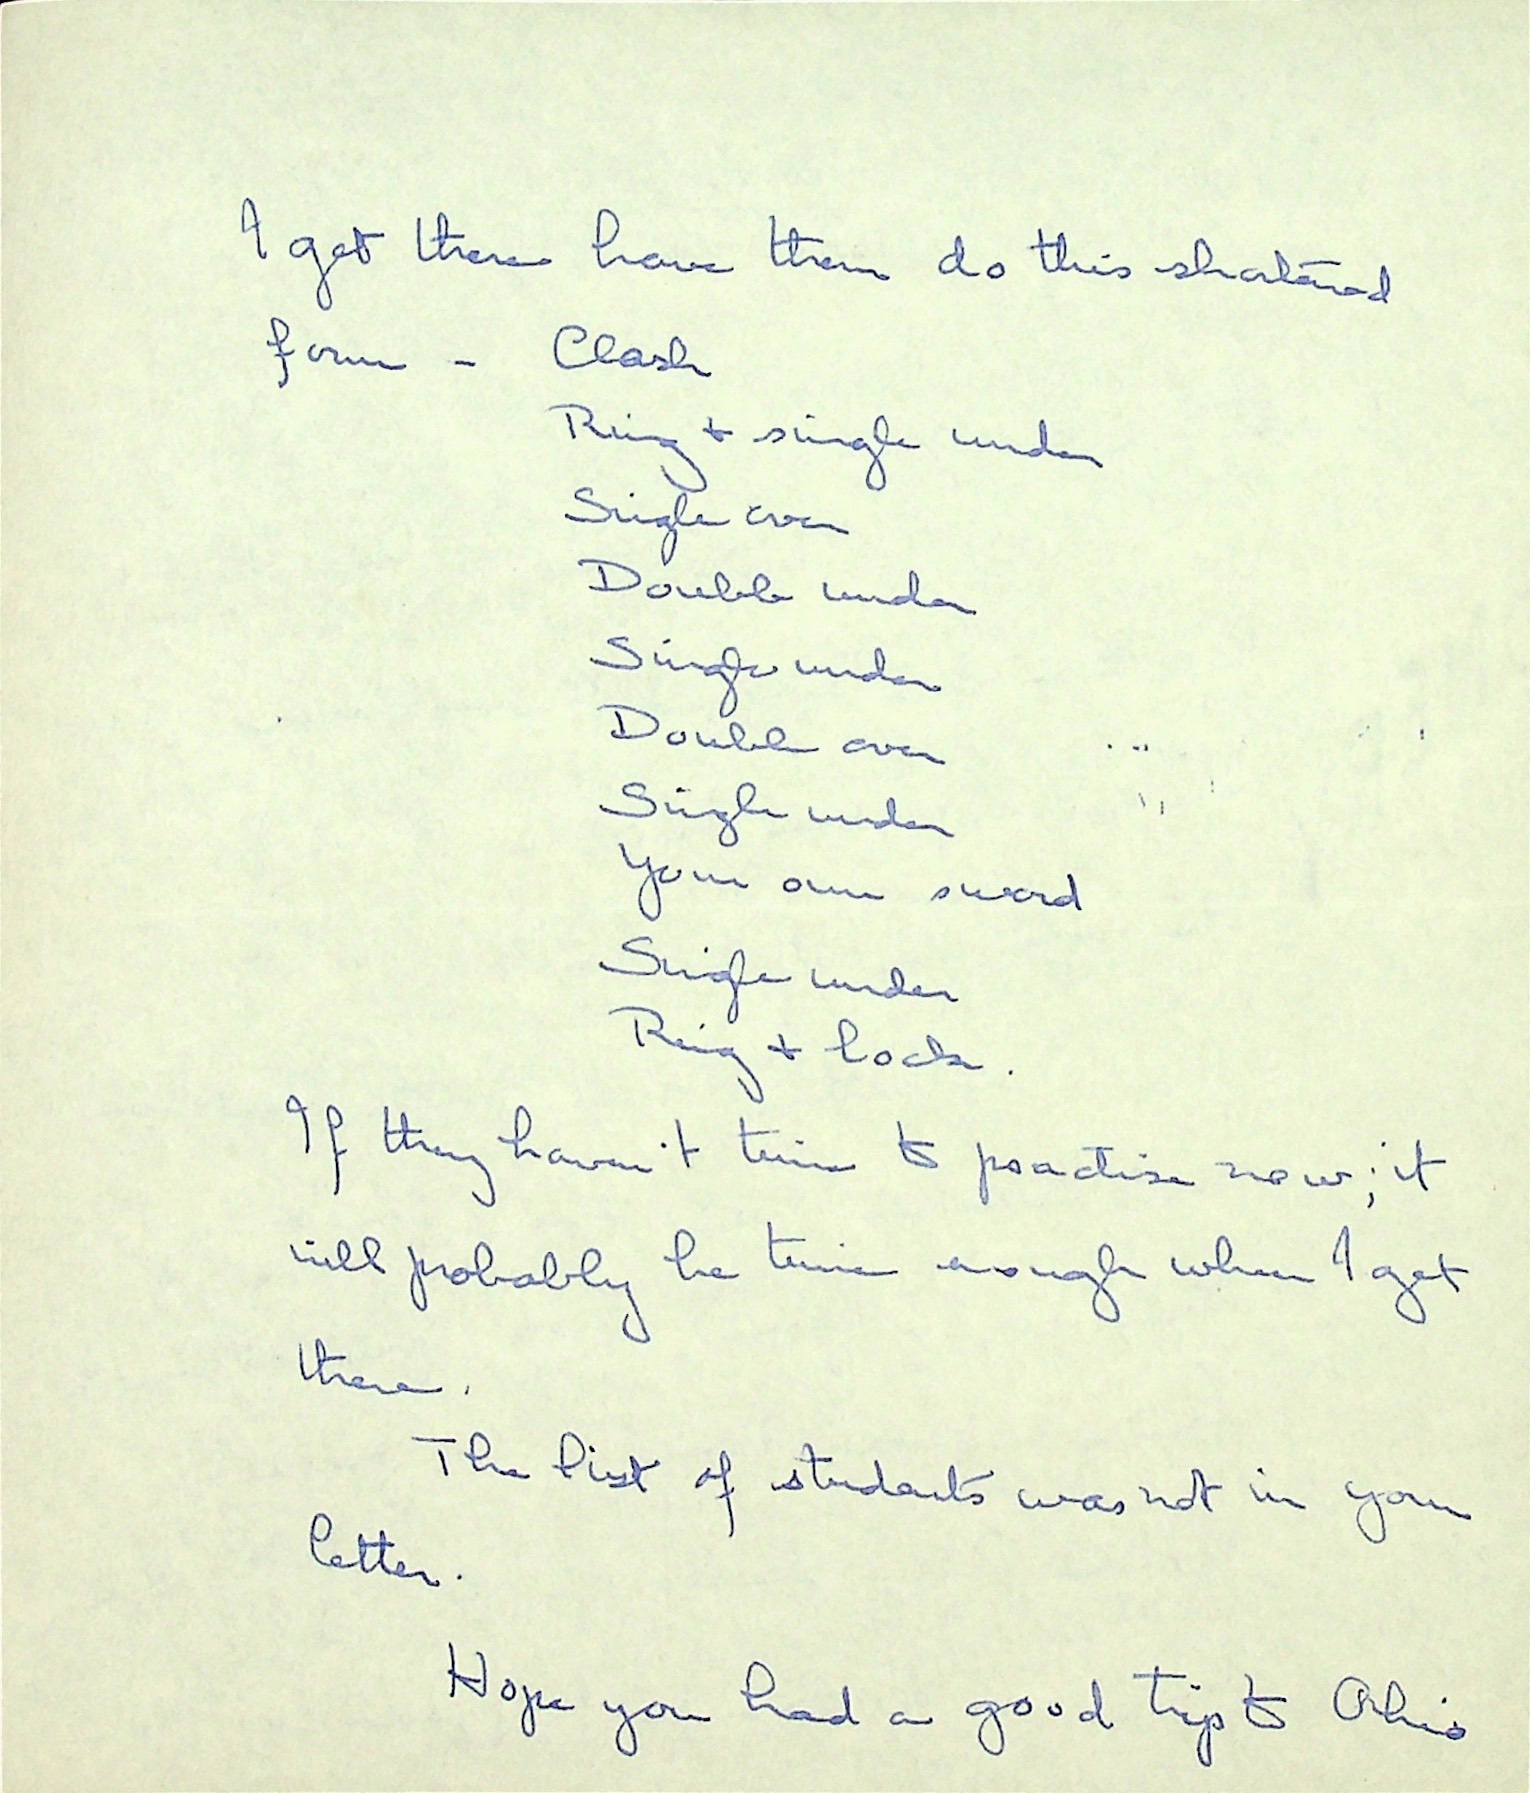 I get there have them do this shortened
form - Clash
Ring + single under
Single over
Double under
Single under
Double over
Single under
Your own sword
Single under
Ring + lock.
If they haven't time to practise now; it
will probably be time enough when I get
there.
The list of students was not in your
letter.
Hope you had a good trip to Ohio